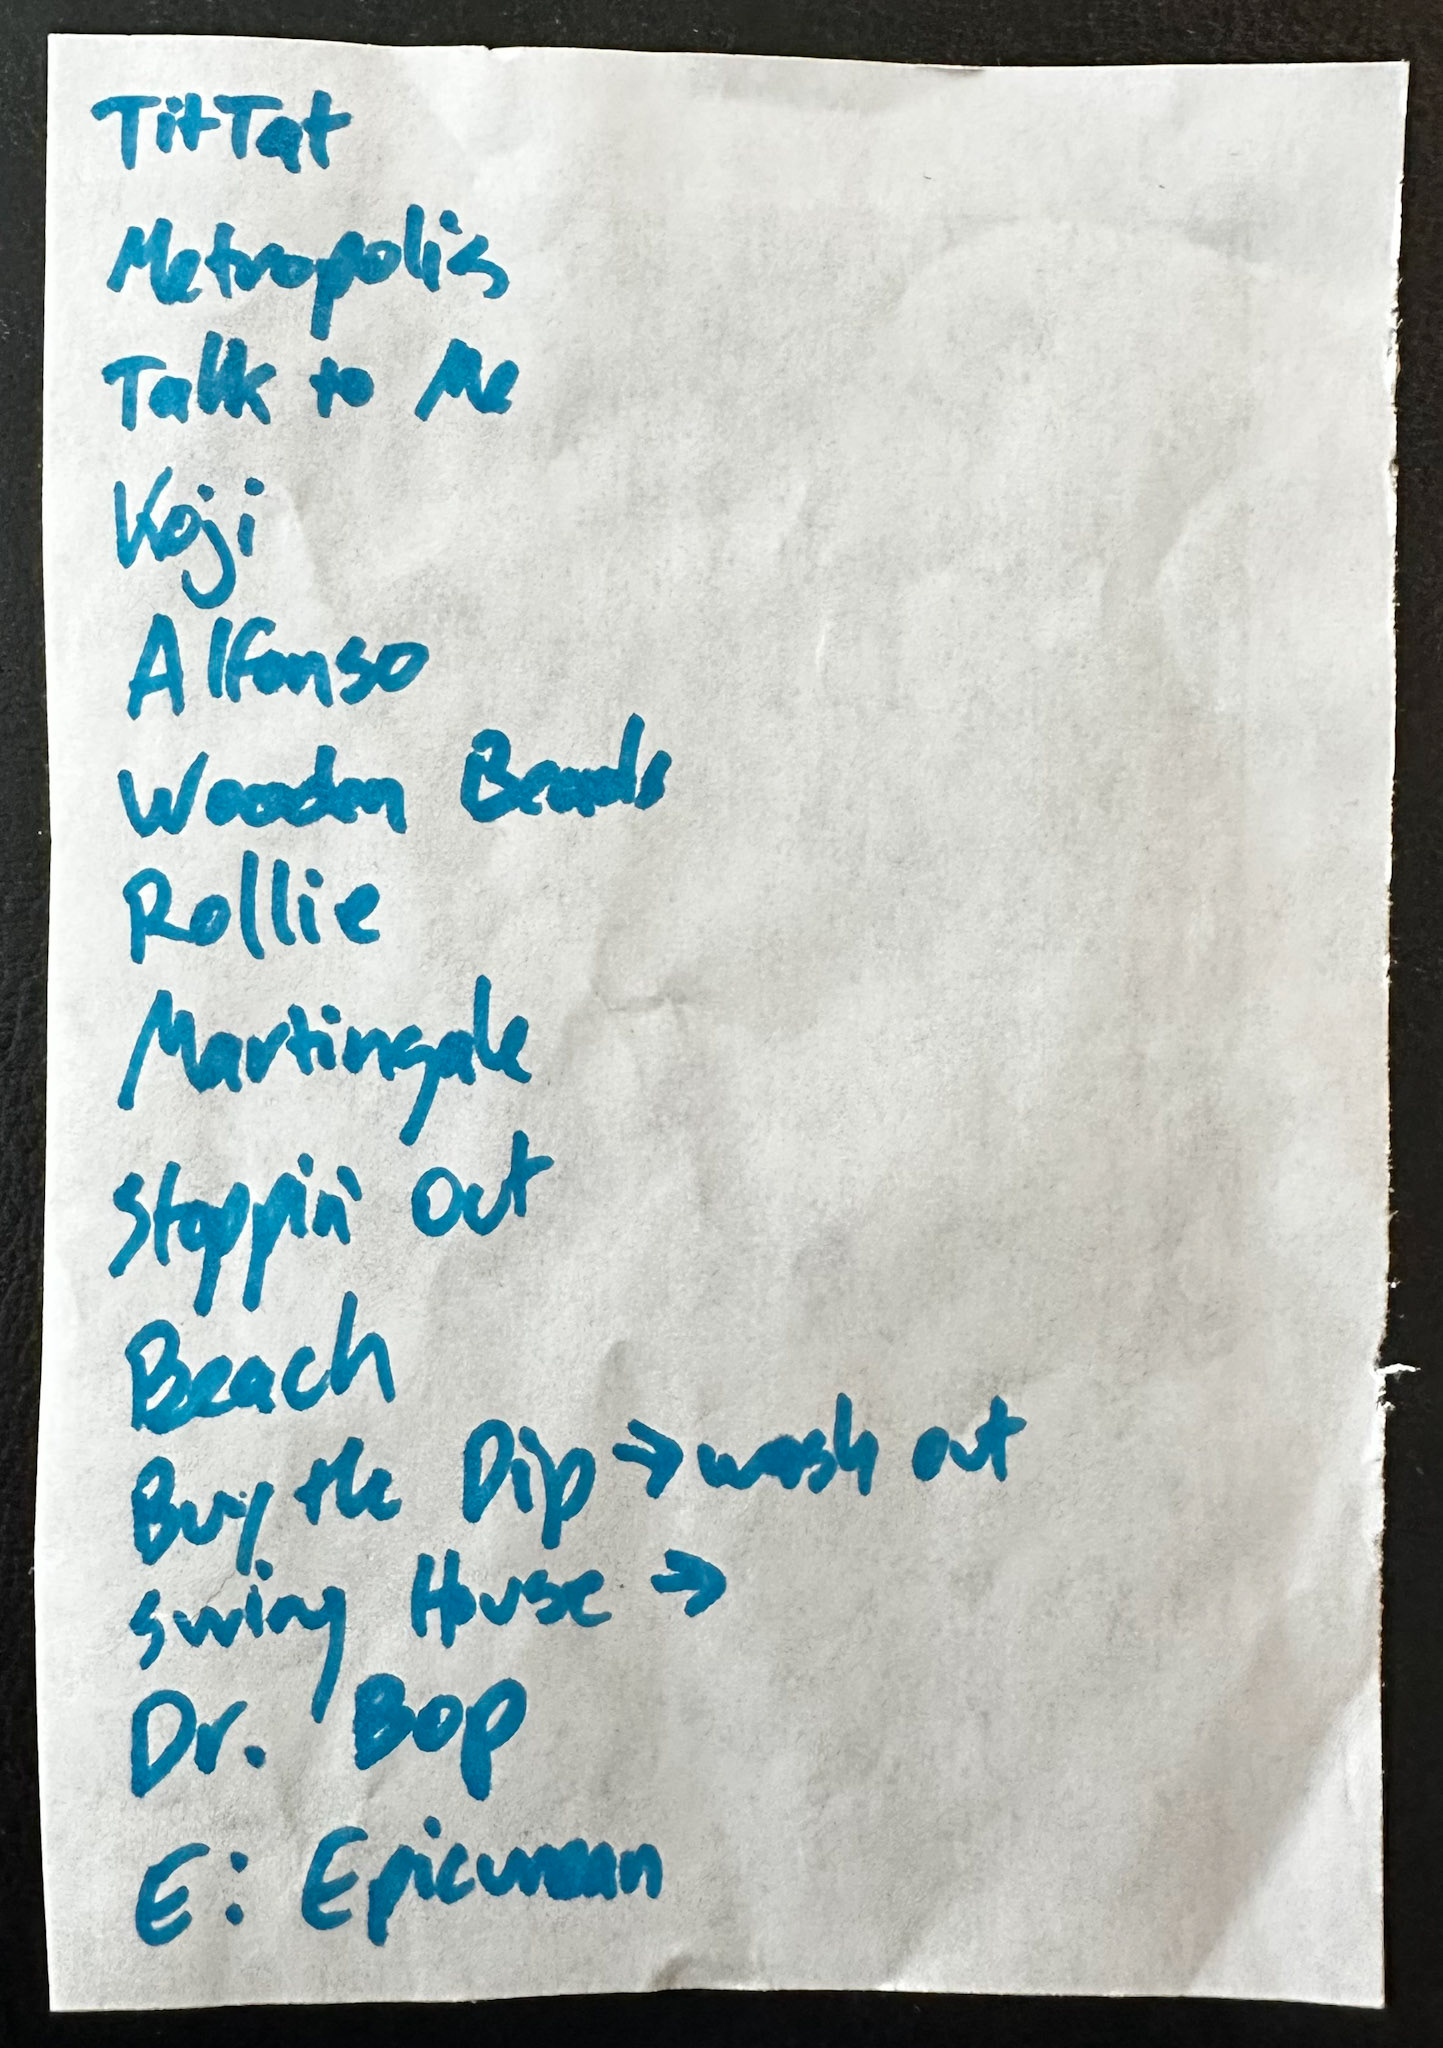 TitTat
Metropolis
Talk to Me
Koji
Alfonso
Wooden Beads
Rollie
Martingale
Steppin' Out
Beach
Buy the Dip → wash out
Swing House →
Dr. Bop
E: Epicurean